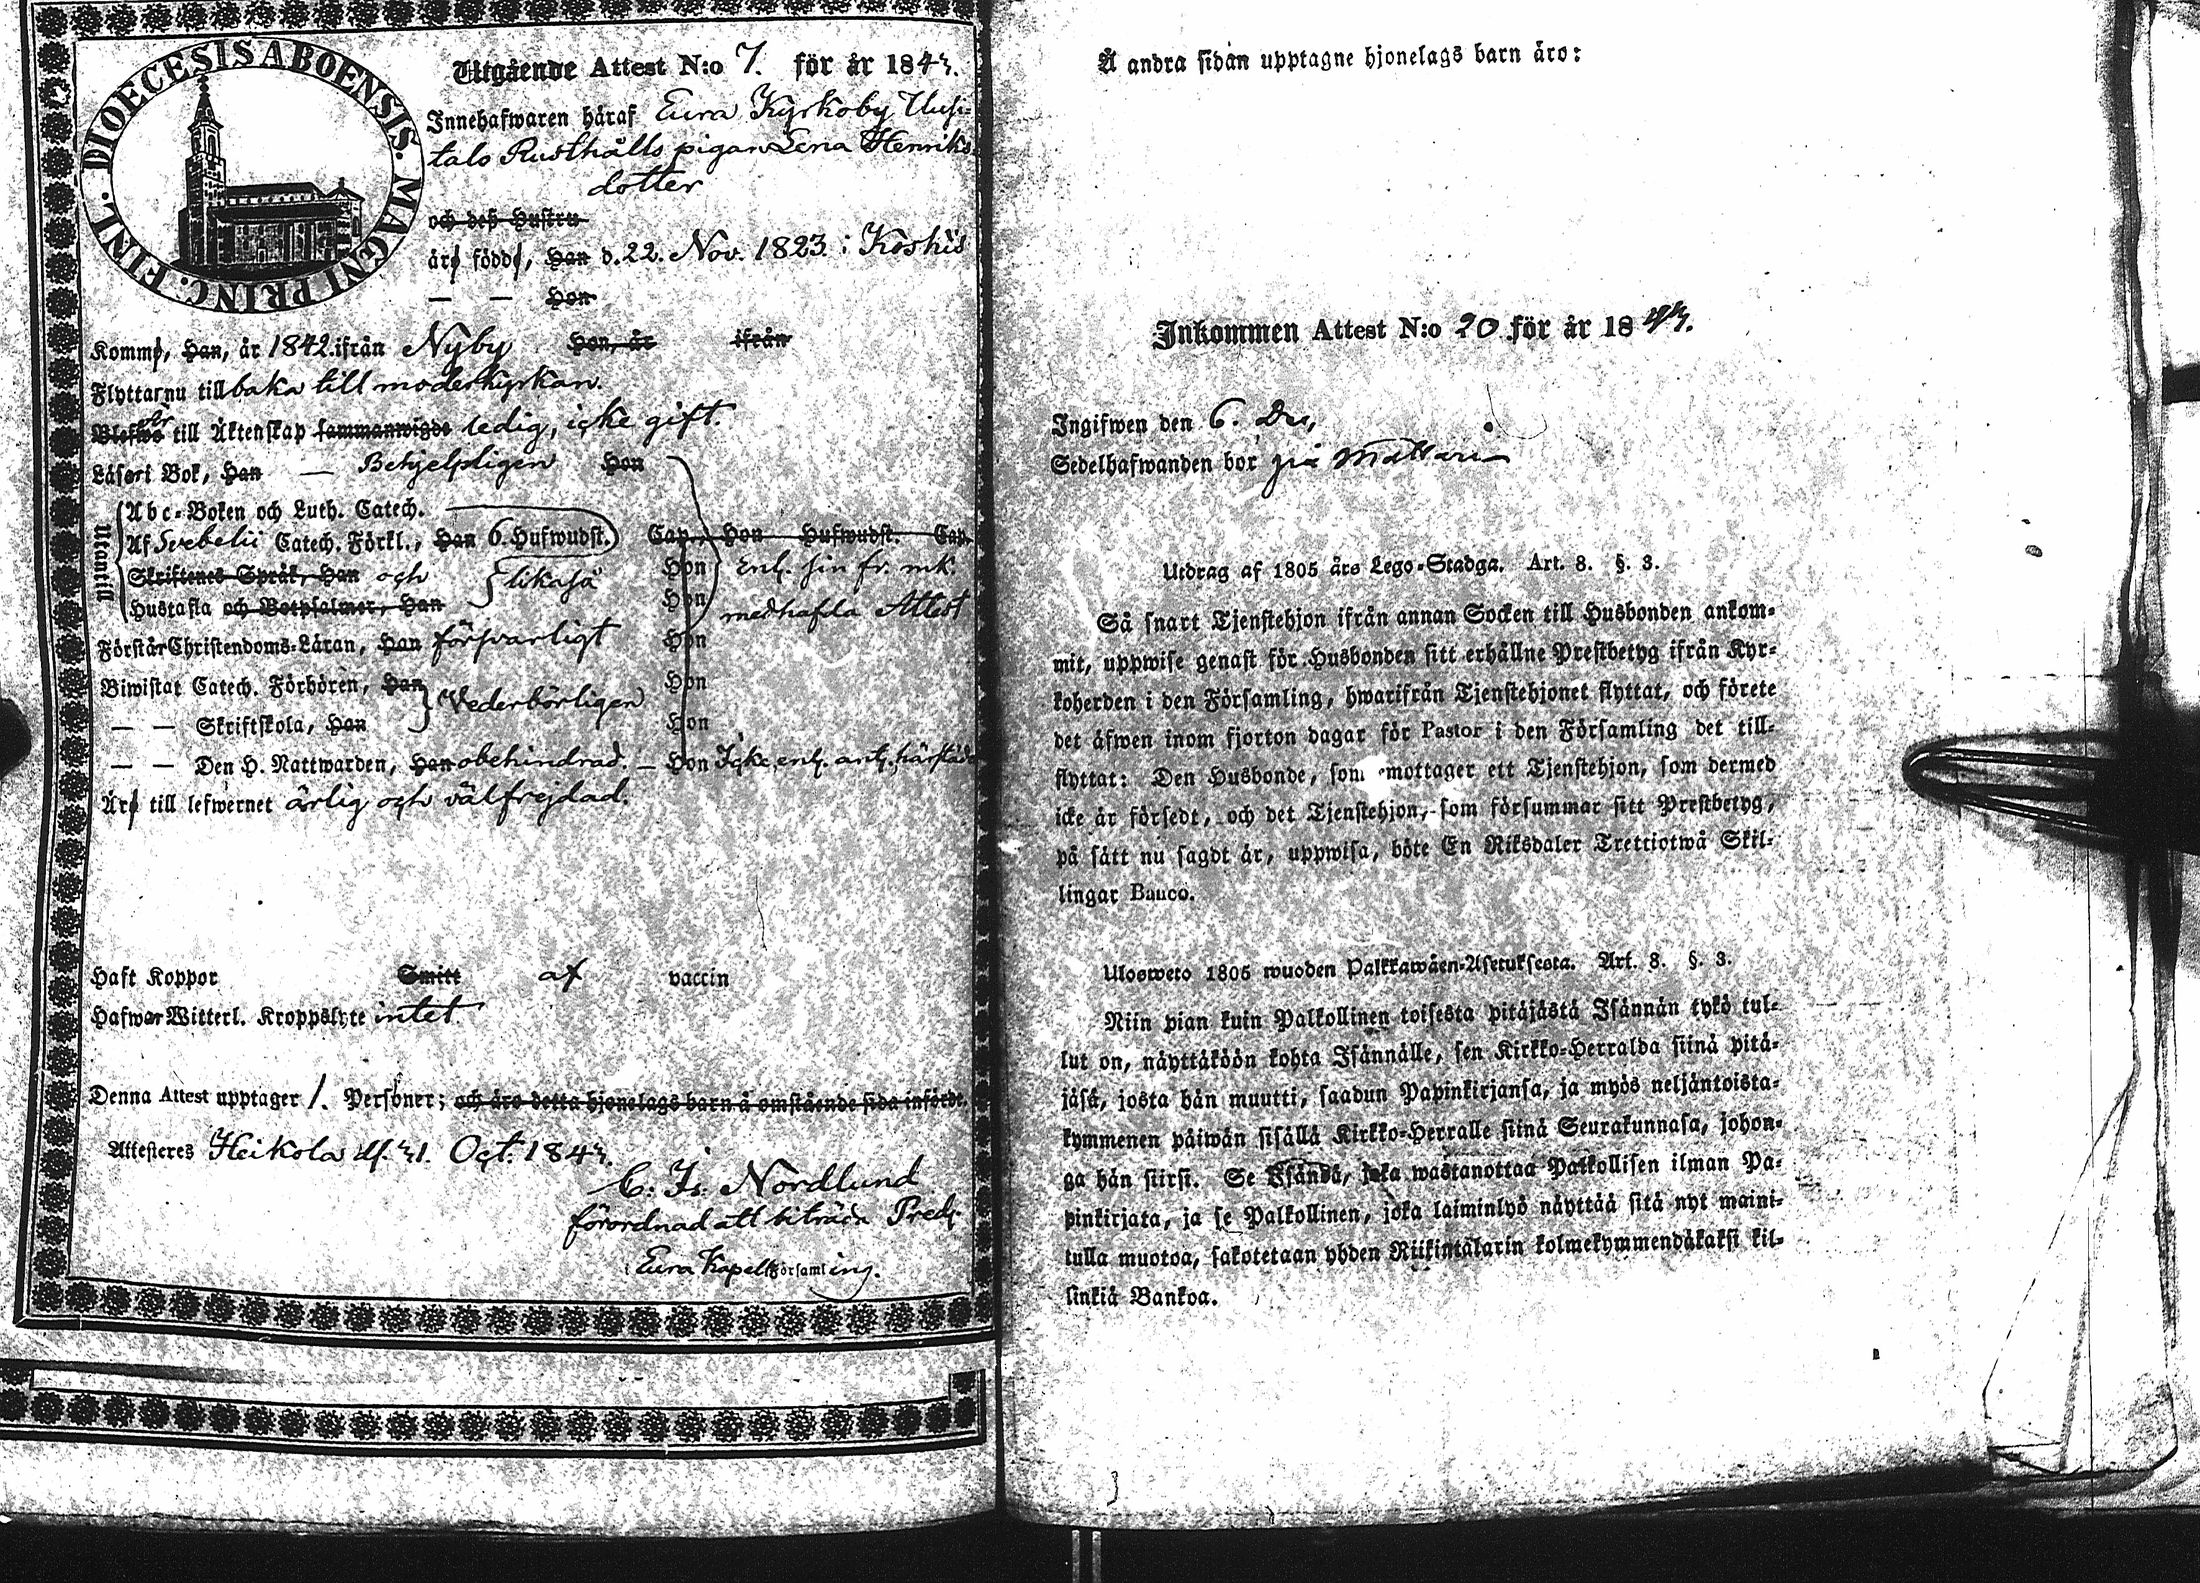 DIOECESIS ABOENSIS. MAGNI PRINC. FINL.
Utgående Attest N:o 7. för år 1843.
Innehafwaren häraf Eura Kyrkoby Uusi-
talo Rusthålls pigan Lena Henriks
dotter
och deß Hustru
är född, Han d. 22. Nov. 1823. i Koskis
— — Hon
Komm, Han, år 1842. ifrån Nyby Hon, år ifrån
Flyttar nu till baka till moderkyrkan.
Blefwo är till Äktenskap sammanwigde ledig, icke gift.
Läser i Bok, Han — Behjelpligen Hon
Utantill
Abc-Boken och Luth. Catech.
Af Svebelii Catech. Förkl., Han 6. Hufwudst. Cap., Hon Hufwudst. Cap.
Skriftenes Språk, Han och likaså Hon enl. sin fr. mk.
Hustafla och Botpsalmer, Han Hon medhafda Attest
Förstår Christendoms-Läran, Han försvarligt Hon
Biwistat Catech. Förhören, Han Vederbörligen Hon
— — Skriftskola, Han Hon
— — Den H. Nattwarden, Han obehindrad. — Hon Icke, enl. ant. härstädes
Är till lefwernet ärlig och välfrejdad.
Haft Koppor Smitt af vaccin
Hafwer Witterl. Kroppslyte intet.
Denna Attest upptager 1. Personer; och äro detta hjonelags barn å omstående sida införde.
Attesteres Heikola d. 31. Oct. 1843.
C. Is. Nordlund
förordnad att biträda Pred.
i Eura Kapell Församling.
Å andra sidan upptagne hjonelags barn äro:
Inkommen Attest N:o 20. för år 1843.
Ingifwen den 6. Dec,
Sedelhafwanden bor på Mattari
Utdrag af 1805 års Lego-Stadga. Art. 8. §. 3.
Så snart Tjenstehjon ifrån annan Socken till Husbonden ankom-
mit, uppwise genast för Husbonden sitt erhållne Prestbetyg ifrån Kyr-
koherden i den Församling, hwarifrån Tjenstehjonet flyttat, och förete
det äfwen inom fjorton dagar för Pastor i den Församling det till-
flyttat: Den Husbonde, som emottager ett Tjenstehjon, som dermed
icke är försedt, och det Tjenstehjon, som försummar sitt Prestbetyg,
på sätt nu sagdt är, uppwisa, böte En Riksdaler Trettiotwå Skil-
lingar Banco.
Ulosweto 1805 wuoden Palkkawäen-Asetuksesta. Art. 8. §. 3.
Niin pian kuin Palkollinen toisesta pitäjästä Isännän tykö tul-
lut on, näyttäköön kohta Isännälle, sen Kirkko-Herralda siinä pitä-
jäsä, josta hän muutti, saadun Papinkirjansa, ja myös neljäntoista-
kymmenen päiwän sisällä Kirkko-Herralle siinä Seurakunnasa, johon-
ga hän siirsi. Se Isändä, joka wastanottaa Palkollisen ilman Pa-
pinkirjata, ja se Palkollinen, joka laiminlyö näyttää sitä nyt maini-
tulla muotoa, sakotetaan yhden Riikintalarin kolmekymmendäkaksi kil-
linkiä Bankoa.